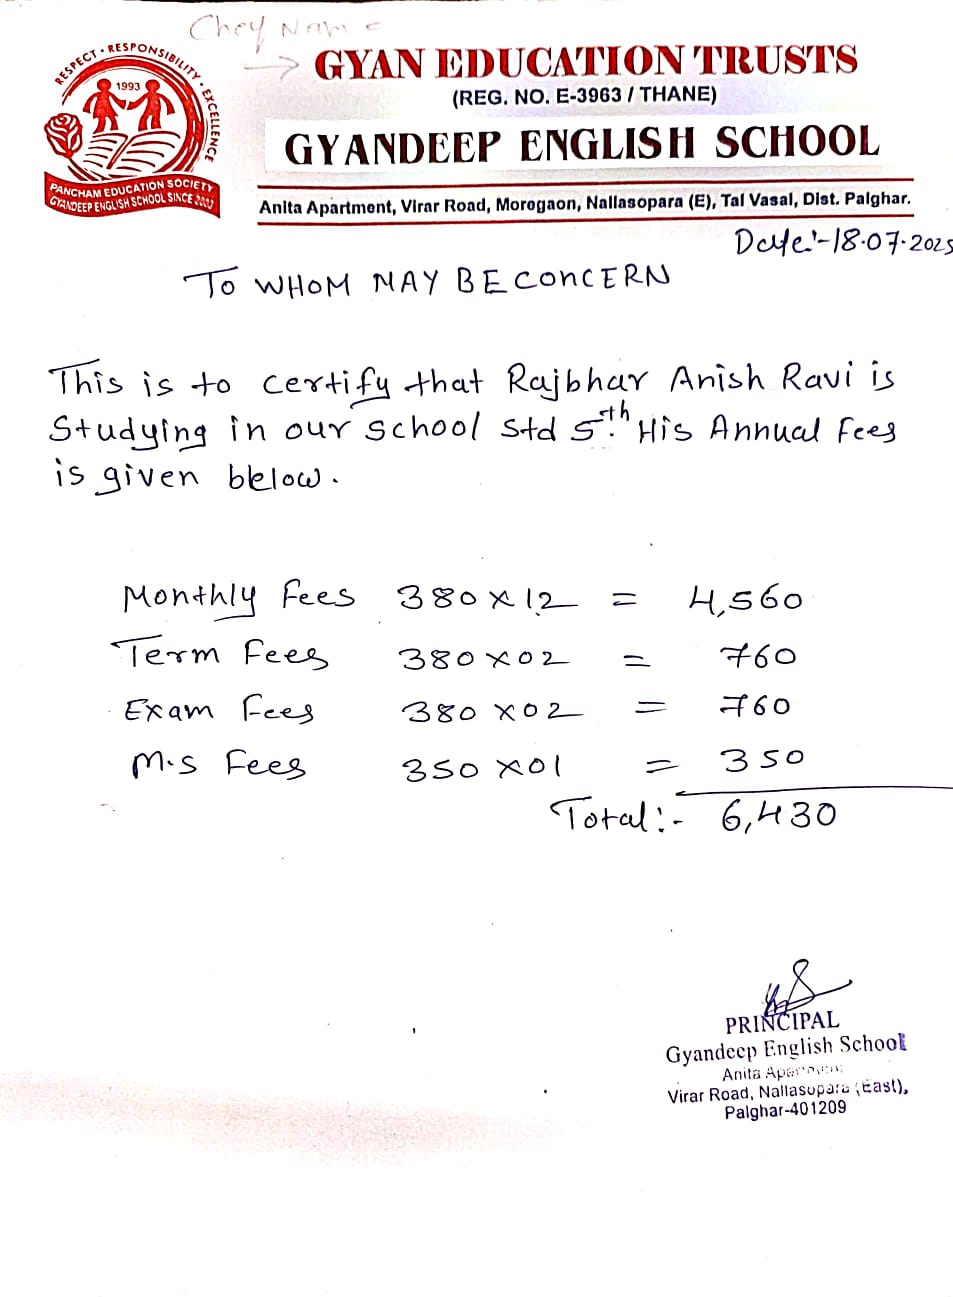 Chey Name
→ GYAN EDUCATION TRUSTS
(REG. NO. E-3963 / THANE)
GYANDEEP ENGLISH SCHOOL
RESPECT • RESPONSIBILITY • EXCELLENCE
1993
PANCHAM EDUCATION SOCIETY
GYANDEEP ENGLISH SCHOOL SINCE
Anita Apartment, Virar Road, Moregaon, Nallasopara (E), Tal Vasai, Dist. Palghar.
Date:-18.07.2025
TO WHOM MAY BE CONCERN
This is to certify that Rajbhar Anish Ravi is
Studying in our School Std 5th His Annual Fees
is given below.
Monthly Fees 380 X 12 = 4,560
Term Fees 380 X 02 = 760
Exam Fees 380 X 02 = 760
M.S Fees 350 X 01 = 350
Total:- 6,430
PRINCIPAL
Gyandeep English School
Anita
Virar Road, Nallasopara (East),
Palghar-401209